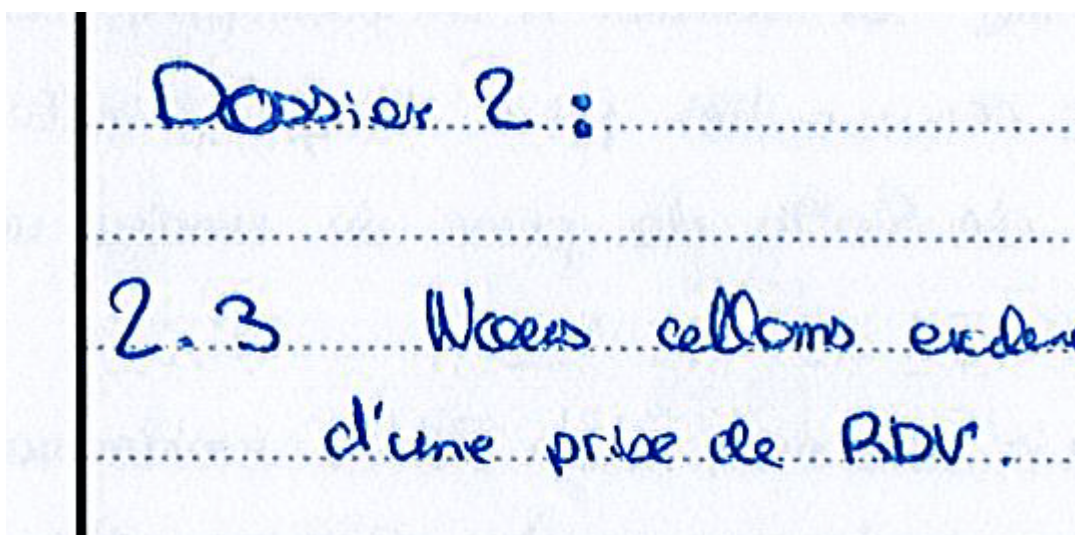 Dossier 2 :
2.3 Nous allons
d'une prise de RDV.